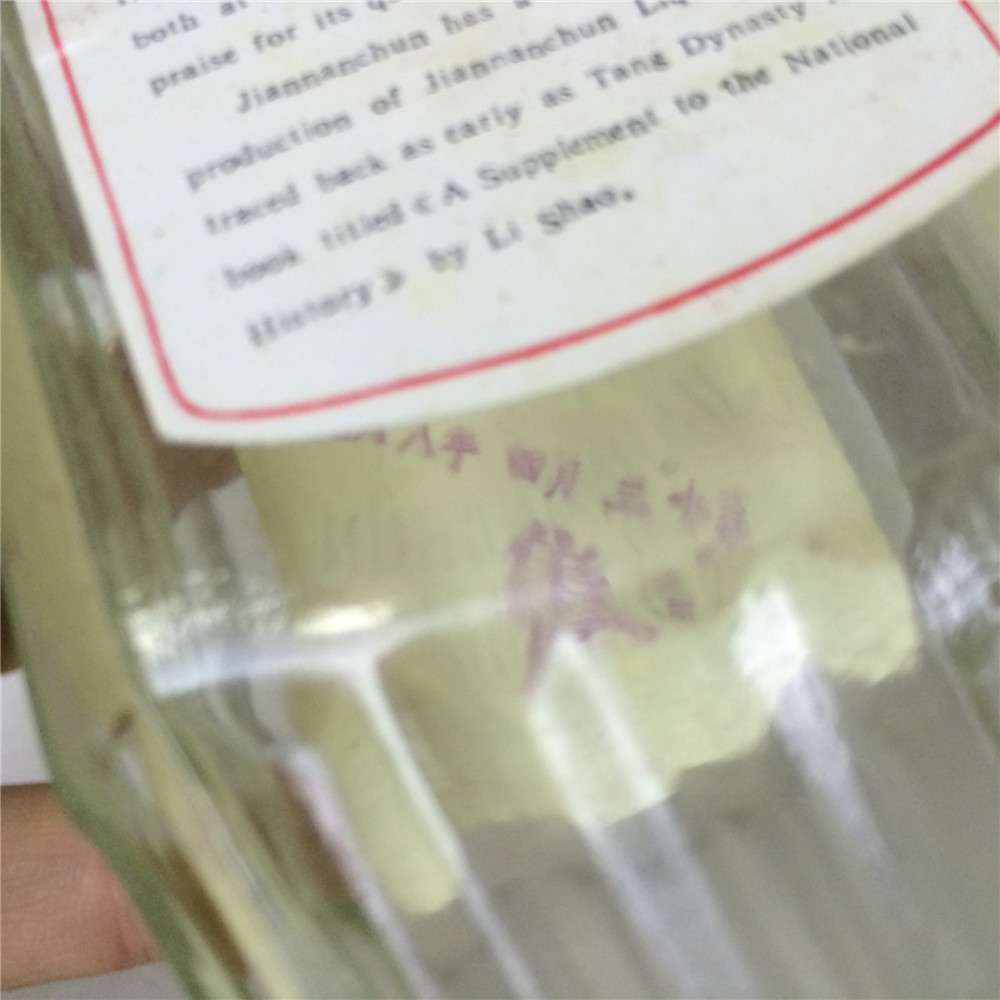 both at
praise for its
Jiannanchun has a
production of Jiannanchun
traced back as early as Tang Dynasty
book titled 《A Supplement to the National
History》 by Li Shao.
八年 四月 三十